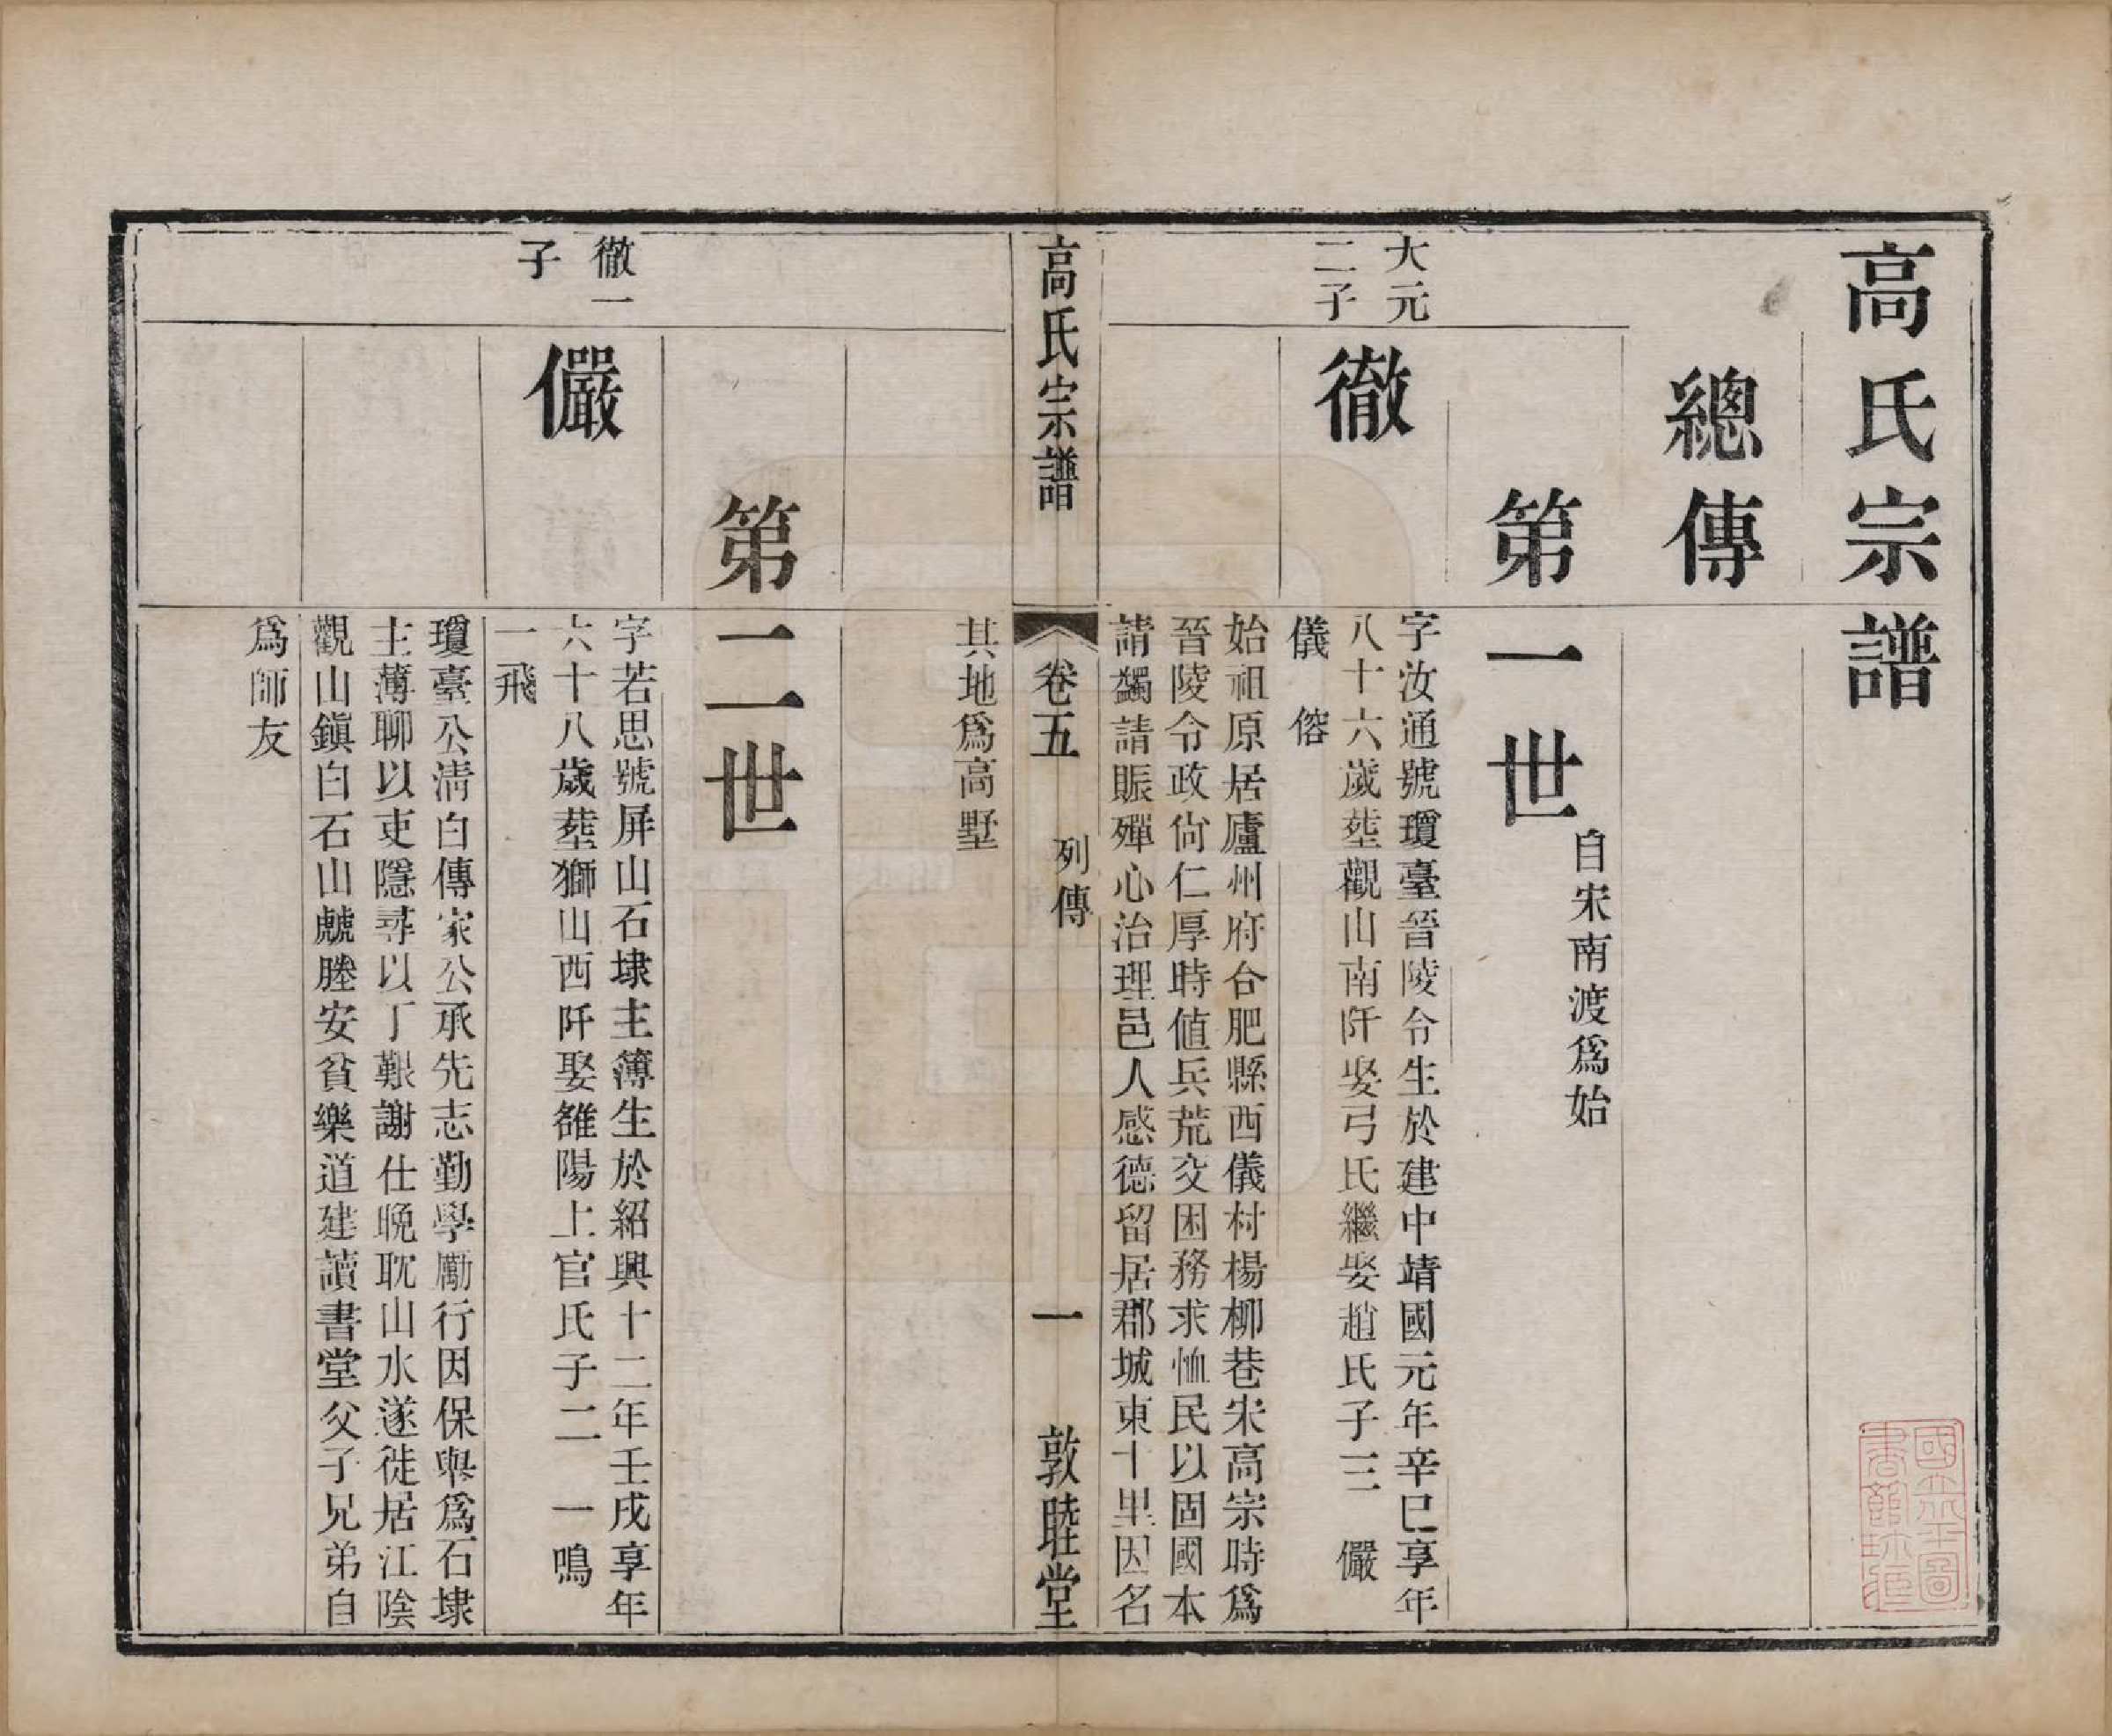 高氏宗譜
總傳
第一世
自宋南渡爲始
大元
二子
徹
字汝通號瓊臺晉陵令生於建中靖國元年辛巳享年
八十六歲塟觀山南阡娶弓氏繼娶趙氏子三　儼
儀　傛
始祖原居廬州府合肥縣西儀村楊柳巷宋高宗時爲
晉陵令政尙仁厚時値兵荒交困務求恤民以固國本
請蠲請賑殫心治理邑人感德留居郡城東十里因名
高氏宗譜　卷五　列傳　一　敦睦堂
其地爲高墅
第二世
徹一
子
儼
字若思號屏山石埭主簿生於紹興十二年壬戌享年
六十八歲塟獅山西阡娶雒陽上官氏子二　一鳴
一飛
瓊臺公淸白傳家公承先志勤學勵行因保舉爲石埭
主薄聊以吏隱尋以丁艱謝仕晚耽山水遂徙居江陰
觀山鎭白石山虤塍安貧樂道建讀書堂父子兄弟自
爲師友
國立北平圖
書館珍藏